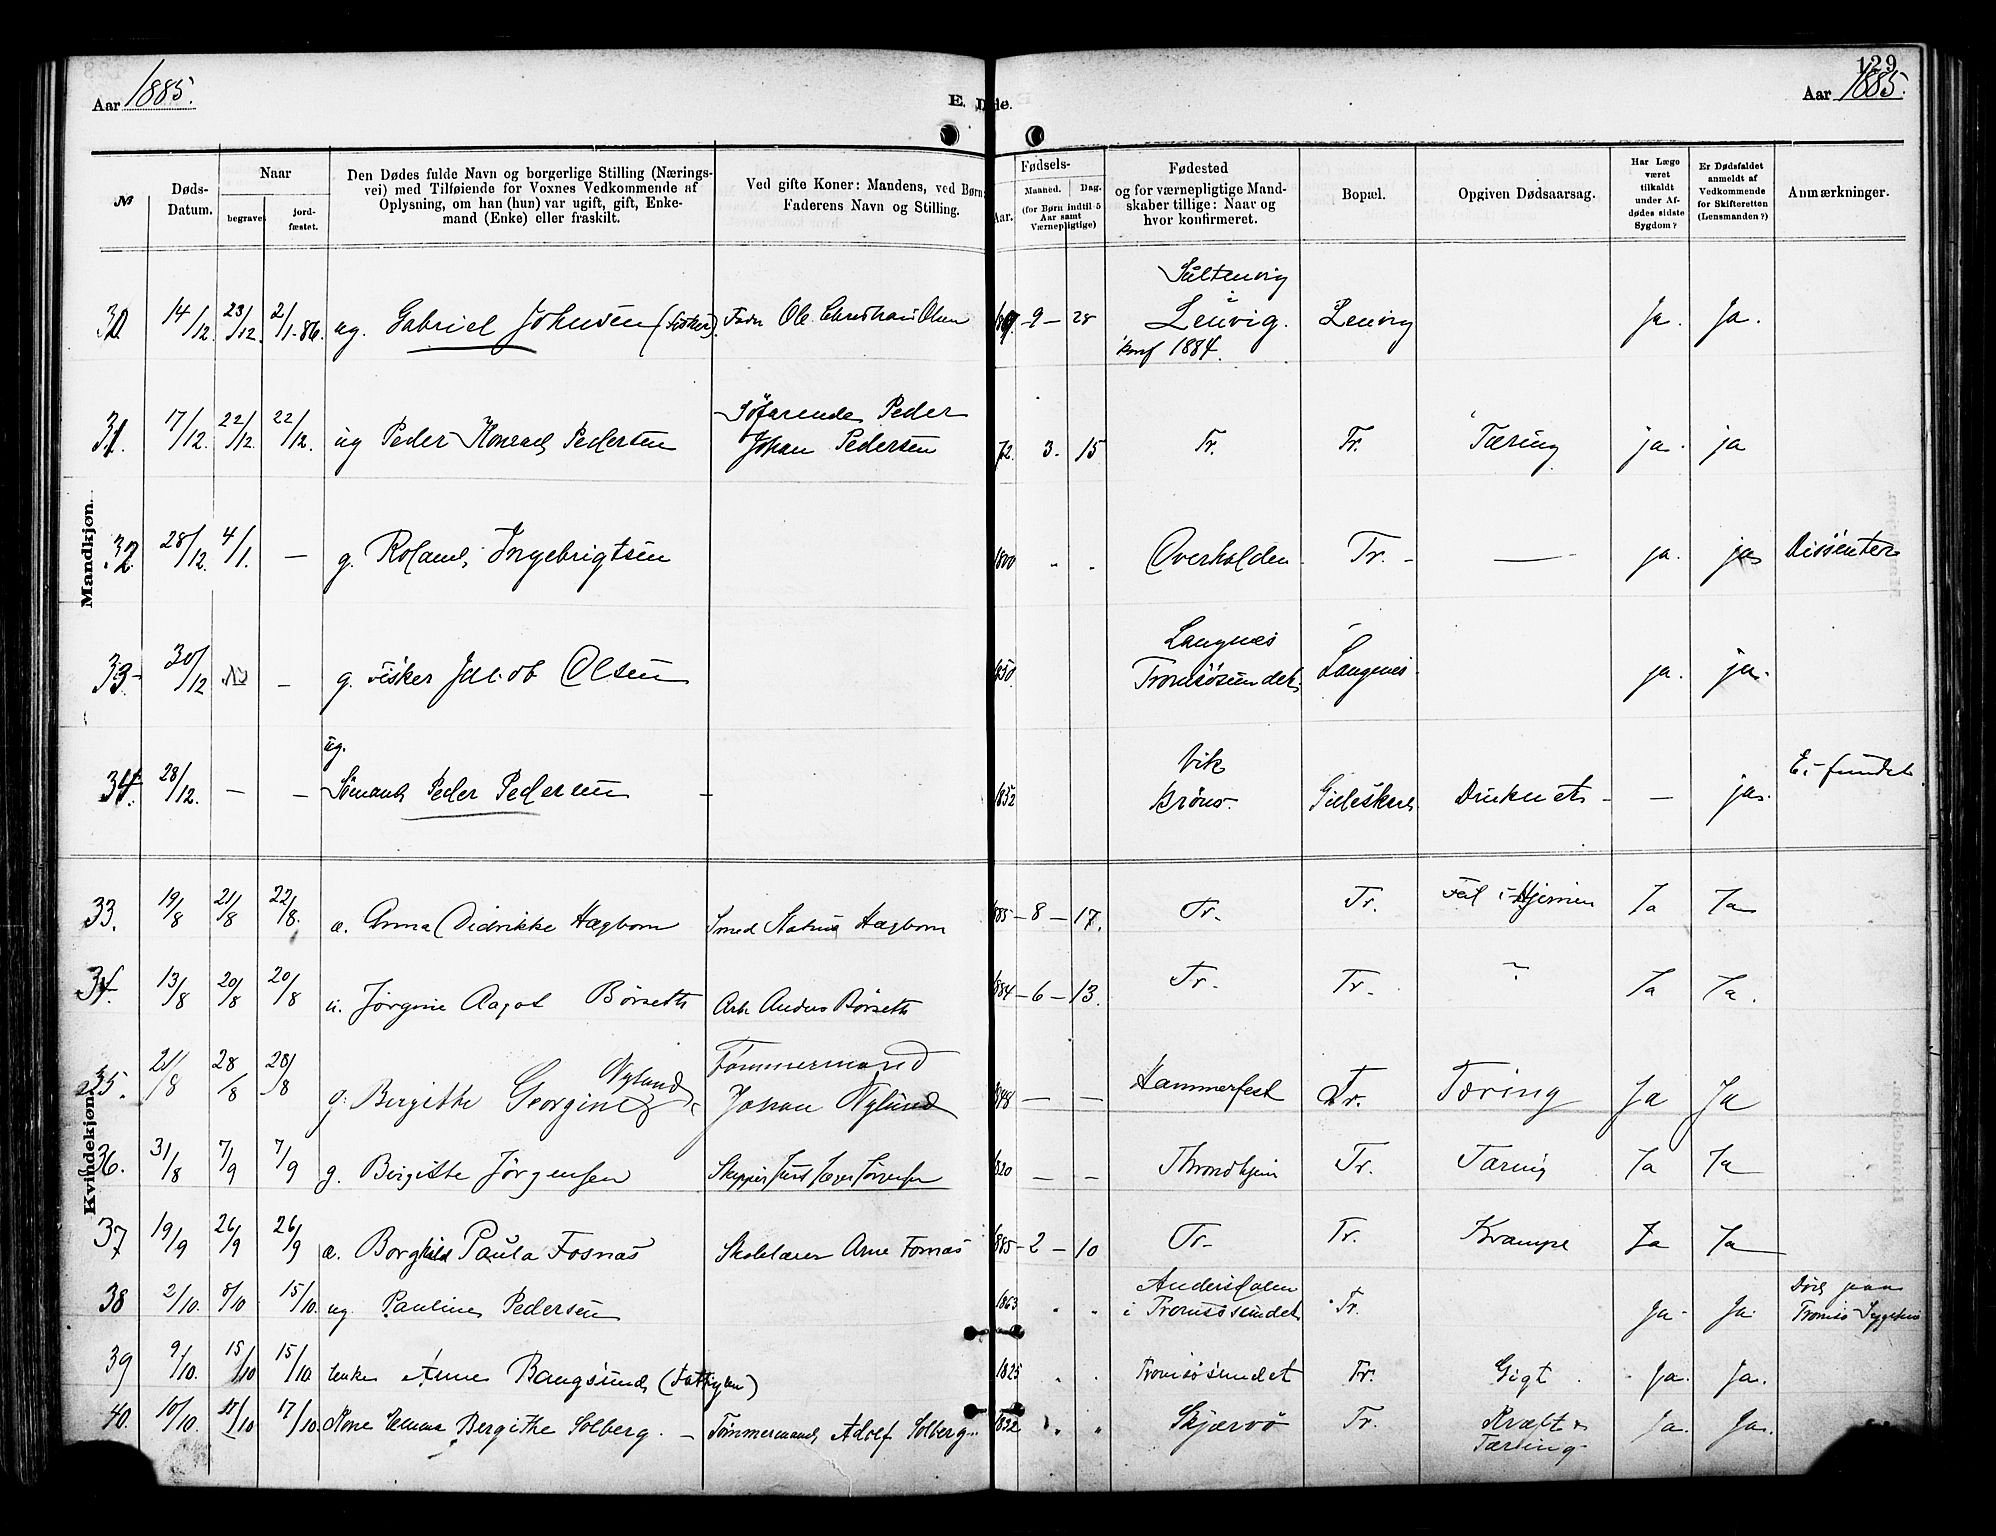 129
Aar 1885.
E. Døde.
Aar 1885.
No
Døds-Datum.
Naar
begravet
jordfæstet.
Den Dødes fulde Navn og borgerlige Stilling (Nærings-
vei) med Tilføiende for Voxnes Vedkommende af
Oplysning, om han (hun) var ugift, gift, Enke-
mand (Enke) eller fraskilt.
Ved gifte Koner: Mandens, ved Børn:
Faderens Navn og Stilling.
Fødsels-
Aar.
Maaned.
Dag.
(for Børn indtil 5
Aar samt
Værnepligtige)
Fødested
og for værnepligtige Mand-
skaber tillige: Naar og
hvor konfirmeret.
Bopæl.
Opgiven Dødsaarsag.
Har Læge
været
tilkaldt
under Af-
dødes sidste
Sygdom?
Er Dødsfaldet
anmeldt af
Vedkommende
for Skifteretten
(Lensmanden?)
Anmærkninger.
Mandkjøn.
30 14/12 23/12. 2/1-86. ug. Gabriel Johnsen (Fisker). Fader Ole Christian Olsen 9 - 28 Lenvig. konf 1884. Lenvig Ja. Ja.
31. 17/12. 22/12. 22/12. ug Peder Konrad Pedersen Søfarende Peder Johan Pedersen 72. 3. 15 Tr. Tr. Tæring ja. ja
32. 28/12. 4/1. — g. Roland Ingebrigtsen 1800 " " Overhalden Tr. — ja. ja Dissenter
33. 30/12 - g. Fisker Jakob Olsen 1850 Langnes Tromsøsundet Langenes ja. ja.
34. 28/12. — — ug. Sømand Peder Pedersen - 1852 Vik Brønø Gilleskaal Druknet - — ja. Ei fundet
Kvindekjøn.
33. 19/8 21/8 22/8. æ. Anna Didrikke Hægbom Smed Hægbom 1885 - 8 - 17. Tr. Tr. Feil i Hjernen Ja Ja
34. 13/8 20/8 20/8 u. Jørgine Aagot Børseth Arb Anders Børseth 1884 - 6 - 13. Tr. Tr. ? Ja Ja.
35. 21/8 28/8 28/8 g. Birgithe Georgine Nylund Tømmermand Johan Nylund 1848 — — Hammerfest Tr. Tæring Ja Ja
36. 31/8 7/9 7/9 g. Birgitte Jørgensen Skipper 1820 — — Throndhjem Tr. Tæring Ja Ja
37 19/9 26/9 26/9 æ. Borghild Paula Fosnæs Skolelærer Arne Fosnæs 1885 - 2 - 10 Tr. Tr. Krampe Ja Ja
38 2/10. 8/10 15/10. ug Pauline Pedersen 1863 " " Andersdalen i Tromsøsundet Tr. Ja. Ja. Død paa Tromsø Sygehus
39 9/10. 15/10 15/10 Enke Anne Bangsund (Fattiglem) 1825 " " Tromsøsundet Tr. Gigt. Ja. Ja.
40. 10/10. 17/10 17/10. Kone Emma Bergithe Solberg. - Tømmermand Adolf Solberg 1832 " " Skjærvø Tr. Kræft & Tæring Ja. Ja.